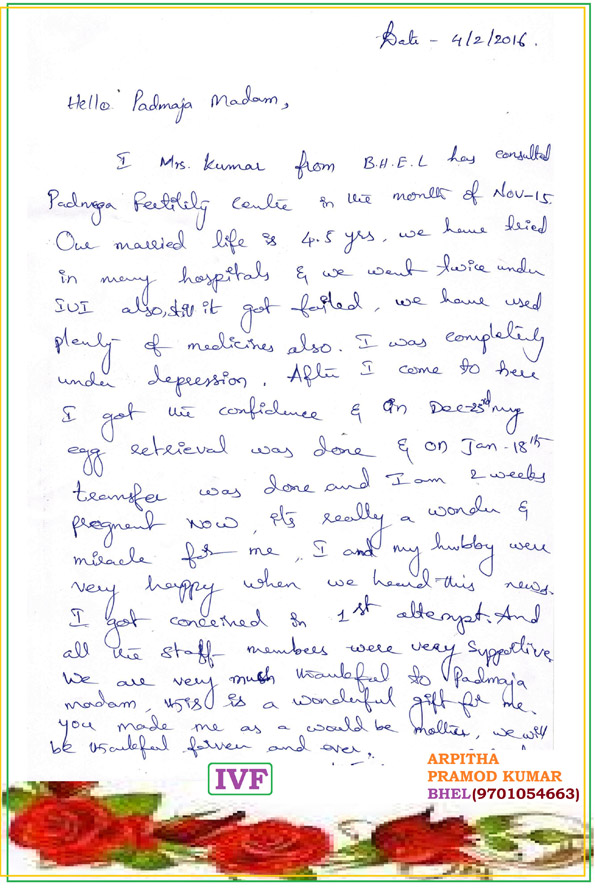 Date - 4/2/2016.
Hello Padmaja Madam,
I Mrs. Kumar from B.H.E.L has consulted
Padmaja Fertility Centre in the month of Nov-15.
Our married life is 4.5 yrs, we have tried
in many hospitals & we went twice under
IUI also, still it got failed, we have used
plenty of medicines also. I was completely
under depression. After I come to here
I got the confidence & on Dec-23rd my
egg retrieval was done & on Jan-18th
transfer was done and I am 2 weeks
pregnent now, its really a wonder &
miracle for me, I and my hubby were
very happy when we heard this news.
I got conceived in 1st attempt. And
all the staff members were very supportive.
We are very much thankful to Padmaja
madam, this is a wonderful gift for me.
you made me as a would be mother, we will
be thankful forever and ever.
IVF
ARPITHA
PRAMOD KUMAR
BHEL(9701054663)